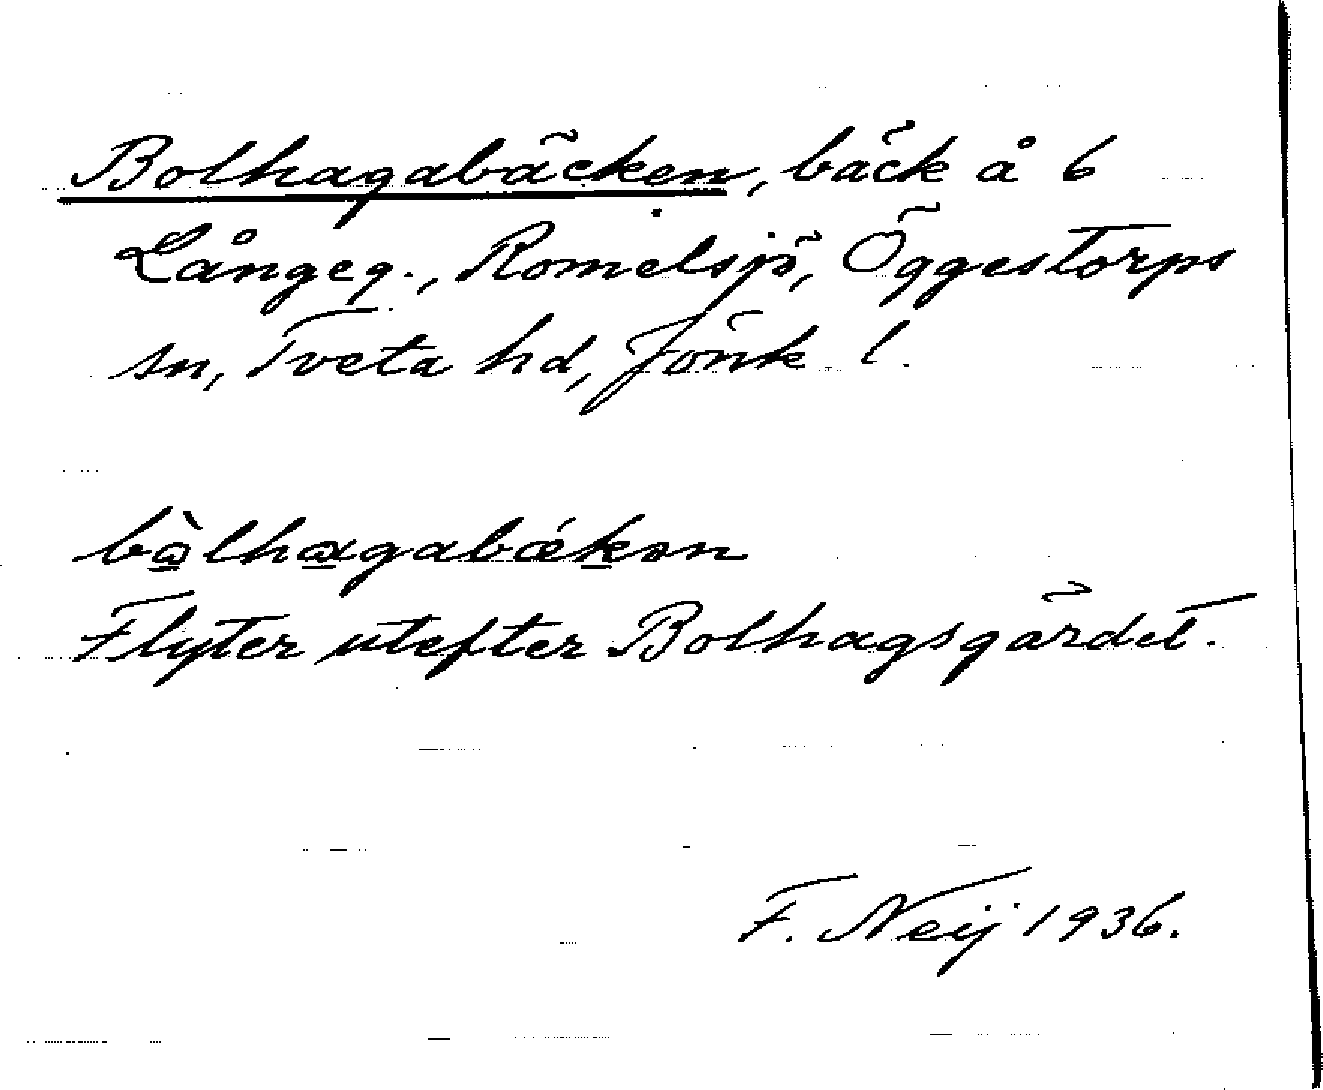 Bolhagabäcken, bäck å 6
Långeg., Romelsjö, Öggestorps
sn, Tveta hd, Jönk l.
bò̲lha̲gabǽk̲ən
Flyter utefter Bolhagsgärdet.
F. Neij 1936.